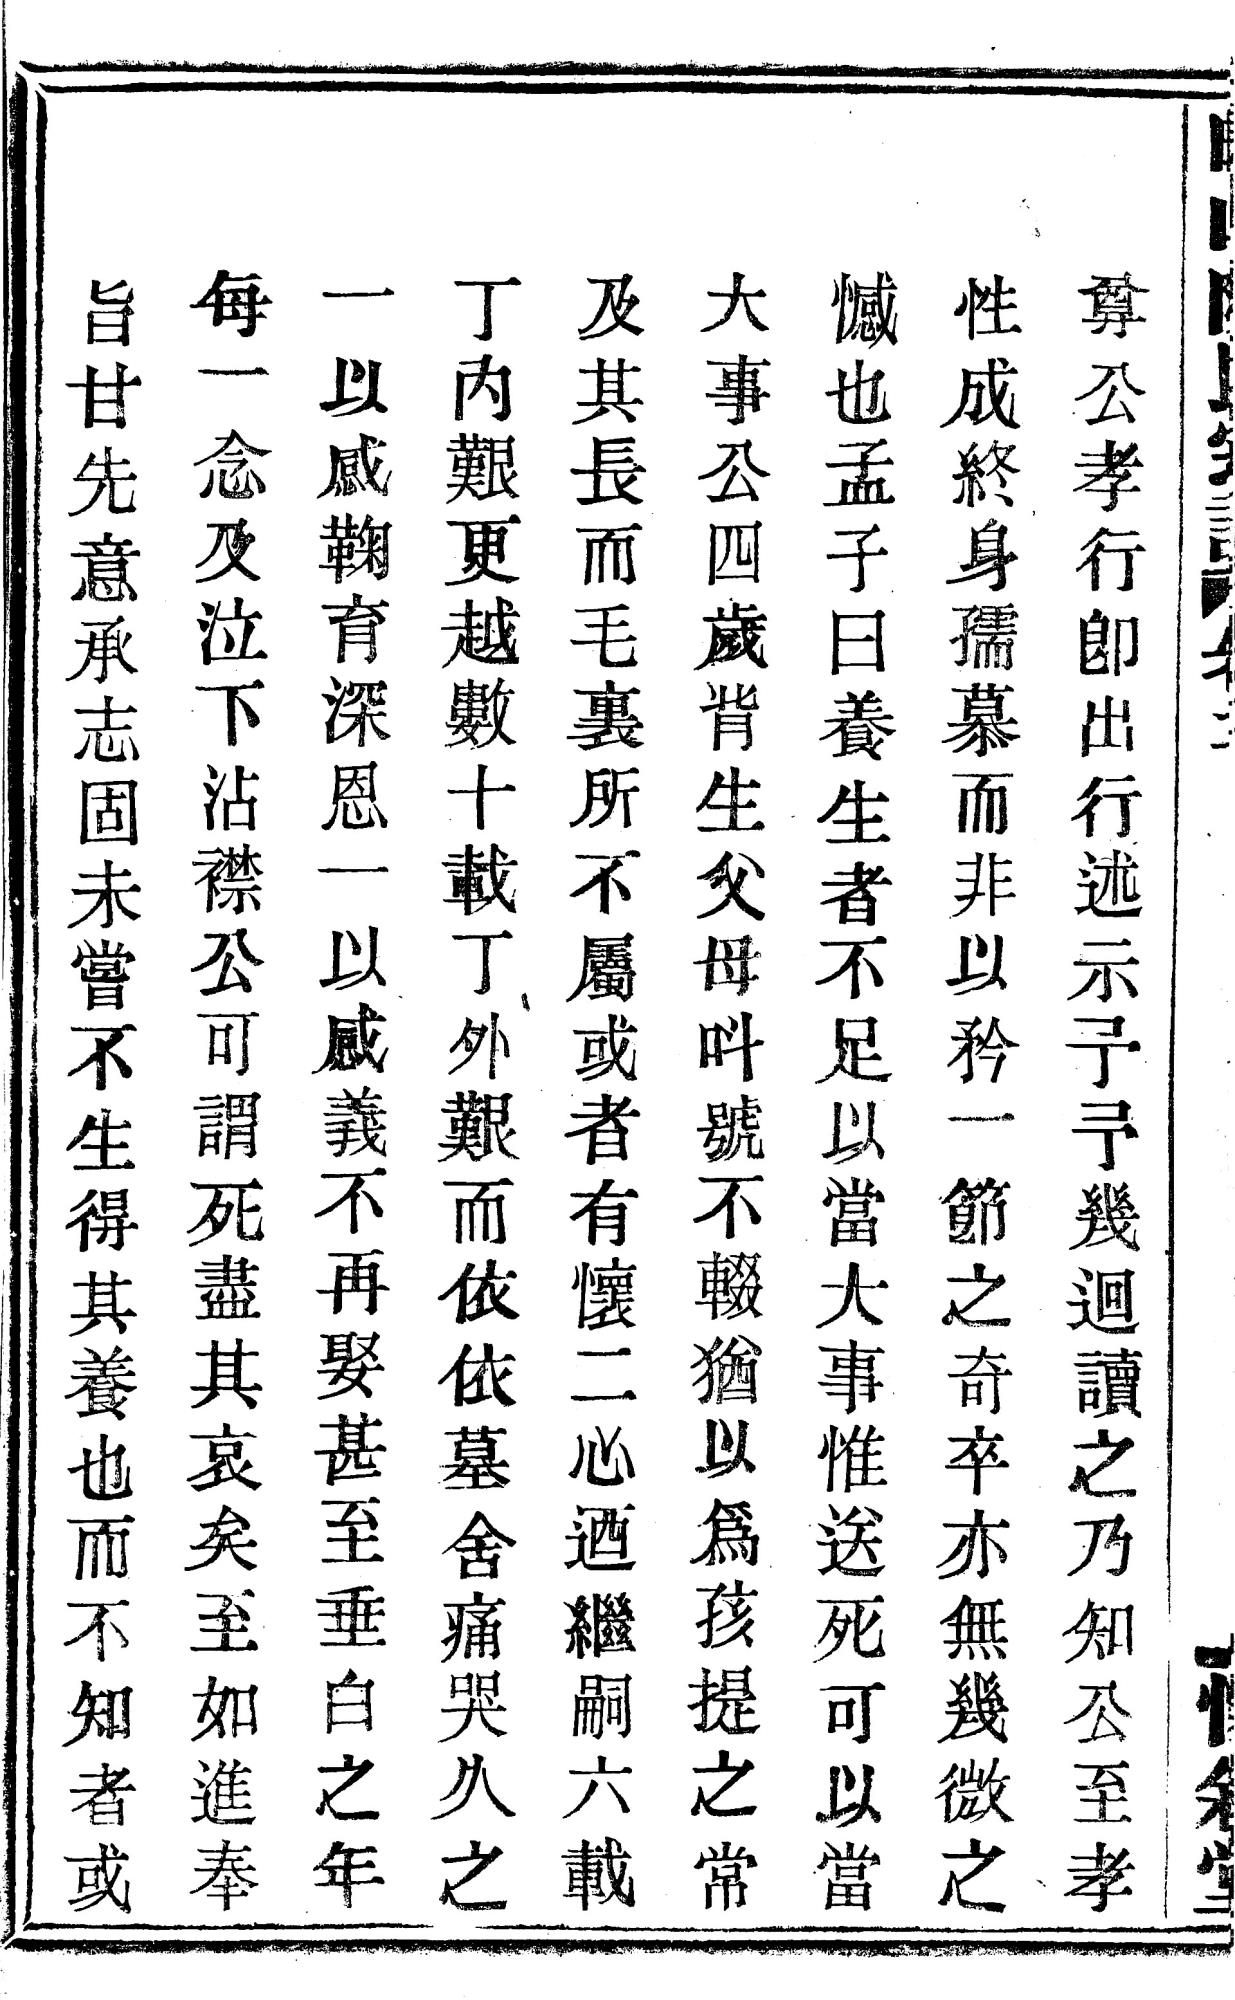 尊公孝行卽出行述示予予幾迴讀之乃知公至孝
性成終身孺慕而非以矜一節之奇卒亦無幾微之
憾也孟子曰養生者不足以當大事惟送死可以當
大事公四歲背生父母呌號不輟猶以爲孩提之常
及其長而毛裏所不屬或者有懷二心迺繼嗣六載
丁內艱更越數十載丁外艱而依依墓舍痛哭久之
一以感鞠育深恩一以感義不再娶甚至垂白之年
每一念及泣下沾襟公可謂死盡其哀矣至如進奉
旨甘先意承志固未嘗不生得其養也而不知者或